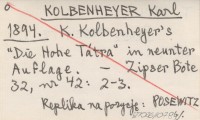 KOLBENHEYER Karl
1894. K. Kolbenheyer's
"Die Hohe Tátra" in neunter
Auflage. — Zipser Bote
32, nr 42: 2-3.
Replika na pozycję: POSEWITZ